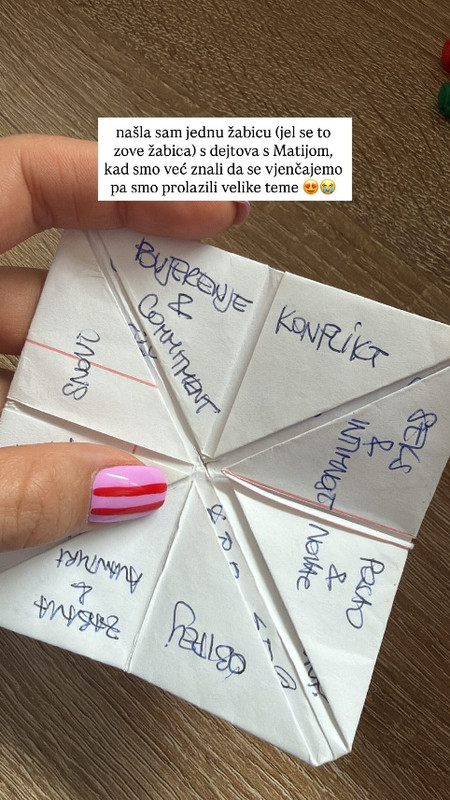 našla sam jednu žabicu (jel se to
zove žabica) s dejtova s Matijom,
kad smo već znali da se vjenčajemo
pa smo prolazili velike teme 😍😭
POVJERENJE
&
COMMITMENT
KONFLIKT
SEKS
&
INTIMNOST
POSAO
&
NOVAC
OBITELJ
ZABAVA
&
AVANTURE
SNOVI